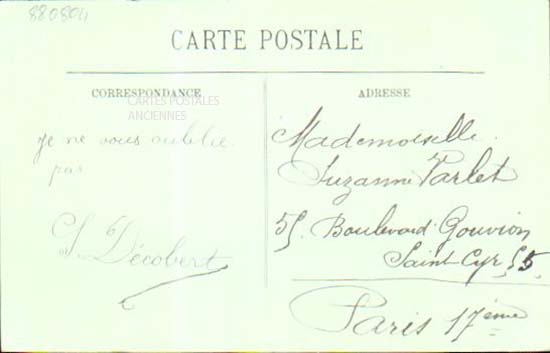 880804
CARTE POSTALE
CORRESPONDANCE
CARTES POSTALES
ANCIENNES
Je ne vous oublie
pas
S. Décobert
ADRESSE
Mademoiselle
Suzanne Varlet
55. Boulevard Gouvion
Saint Cyr 55
Paris 17ème